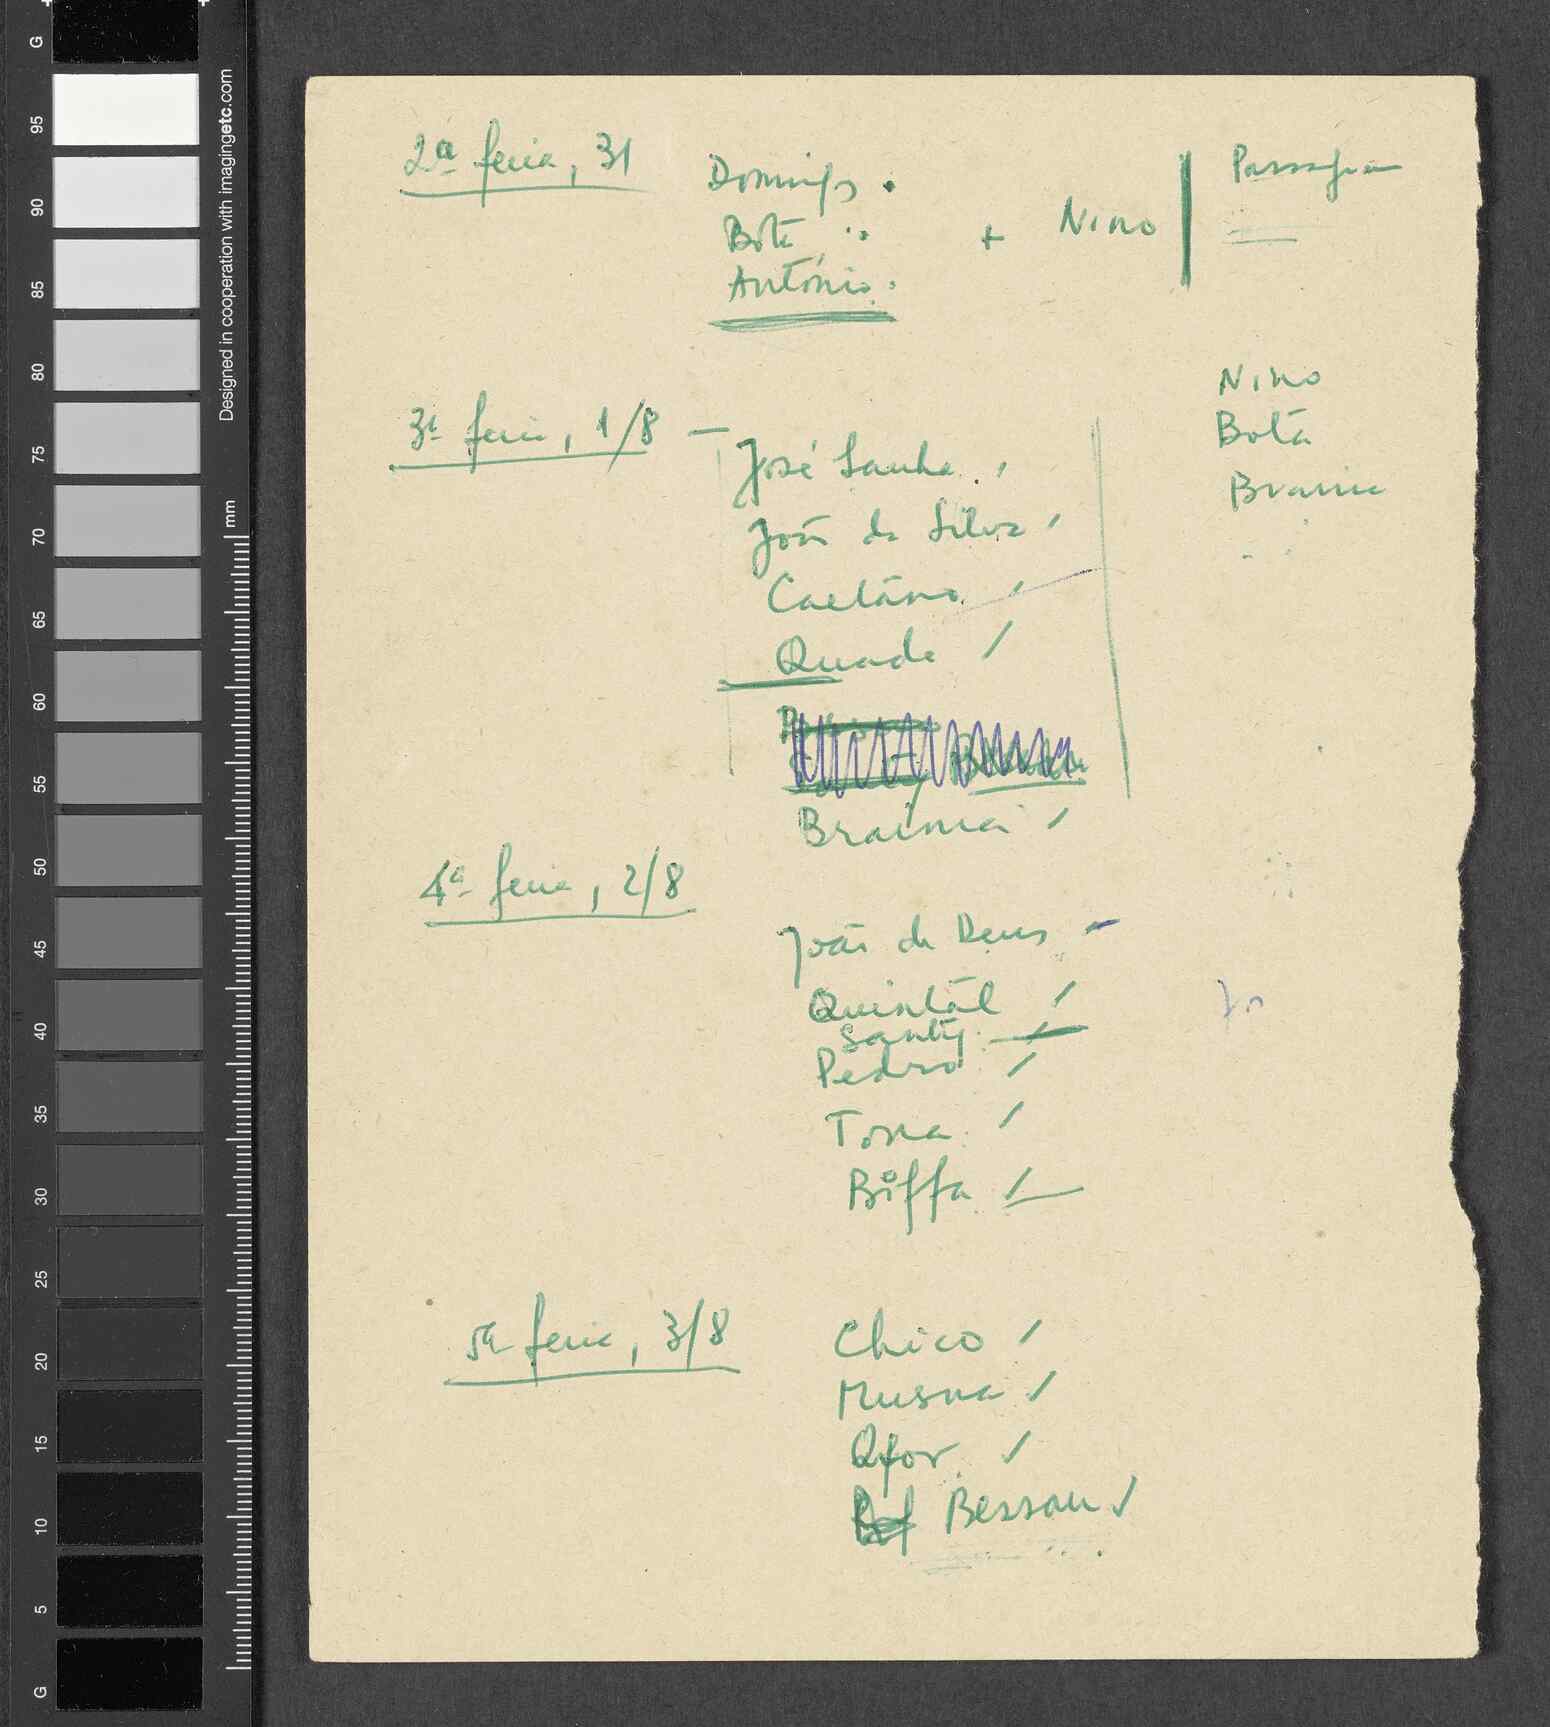 2ª feira, 31
Domingos
Botã
António
+ Nino
3ª feira, 1/8 —
José Sanha
João da Silva
Caetano
Quade
Nino
Botã
Braima
Braima
4ª feira, 2/8
João de Deus
Quintál
Santy
Pedro
Tona
Biffa
5ª feira, 3/8
Chico
Musna
Qfor
Bessau
G
95
90
85
80
75
70
65
60
55
50
45
40
35
30
25
20
15
10
5
G
mm
Designed in cooperation with imagingetc.com